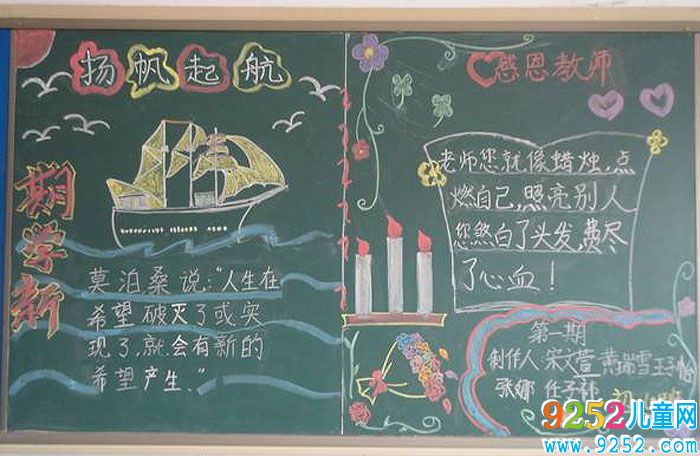 扬帆起航
期学新
莫泊桑说:“人生在
希望破灭了或实
现了,就会有新的
希望产生.”
感恩教师
老师您就像蜡烛,点
燃自己,照亮别人
您熬白了头发,费尽
了心血!
第一期
制作人 宋文萱 黄瑞雪
张娜
9252儿童网
www.9252.com